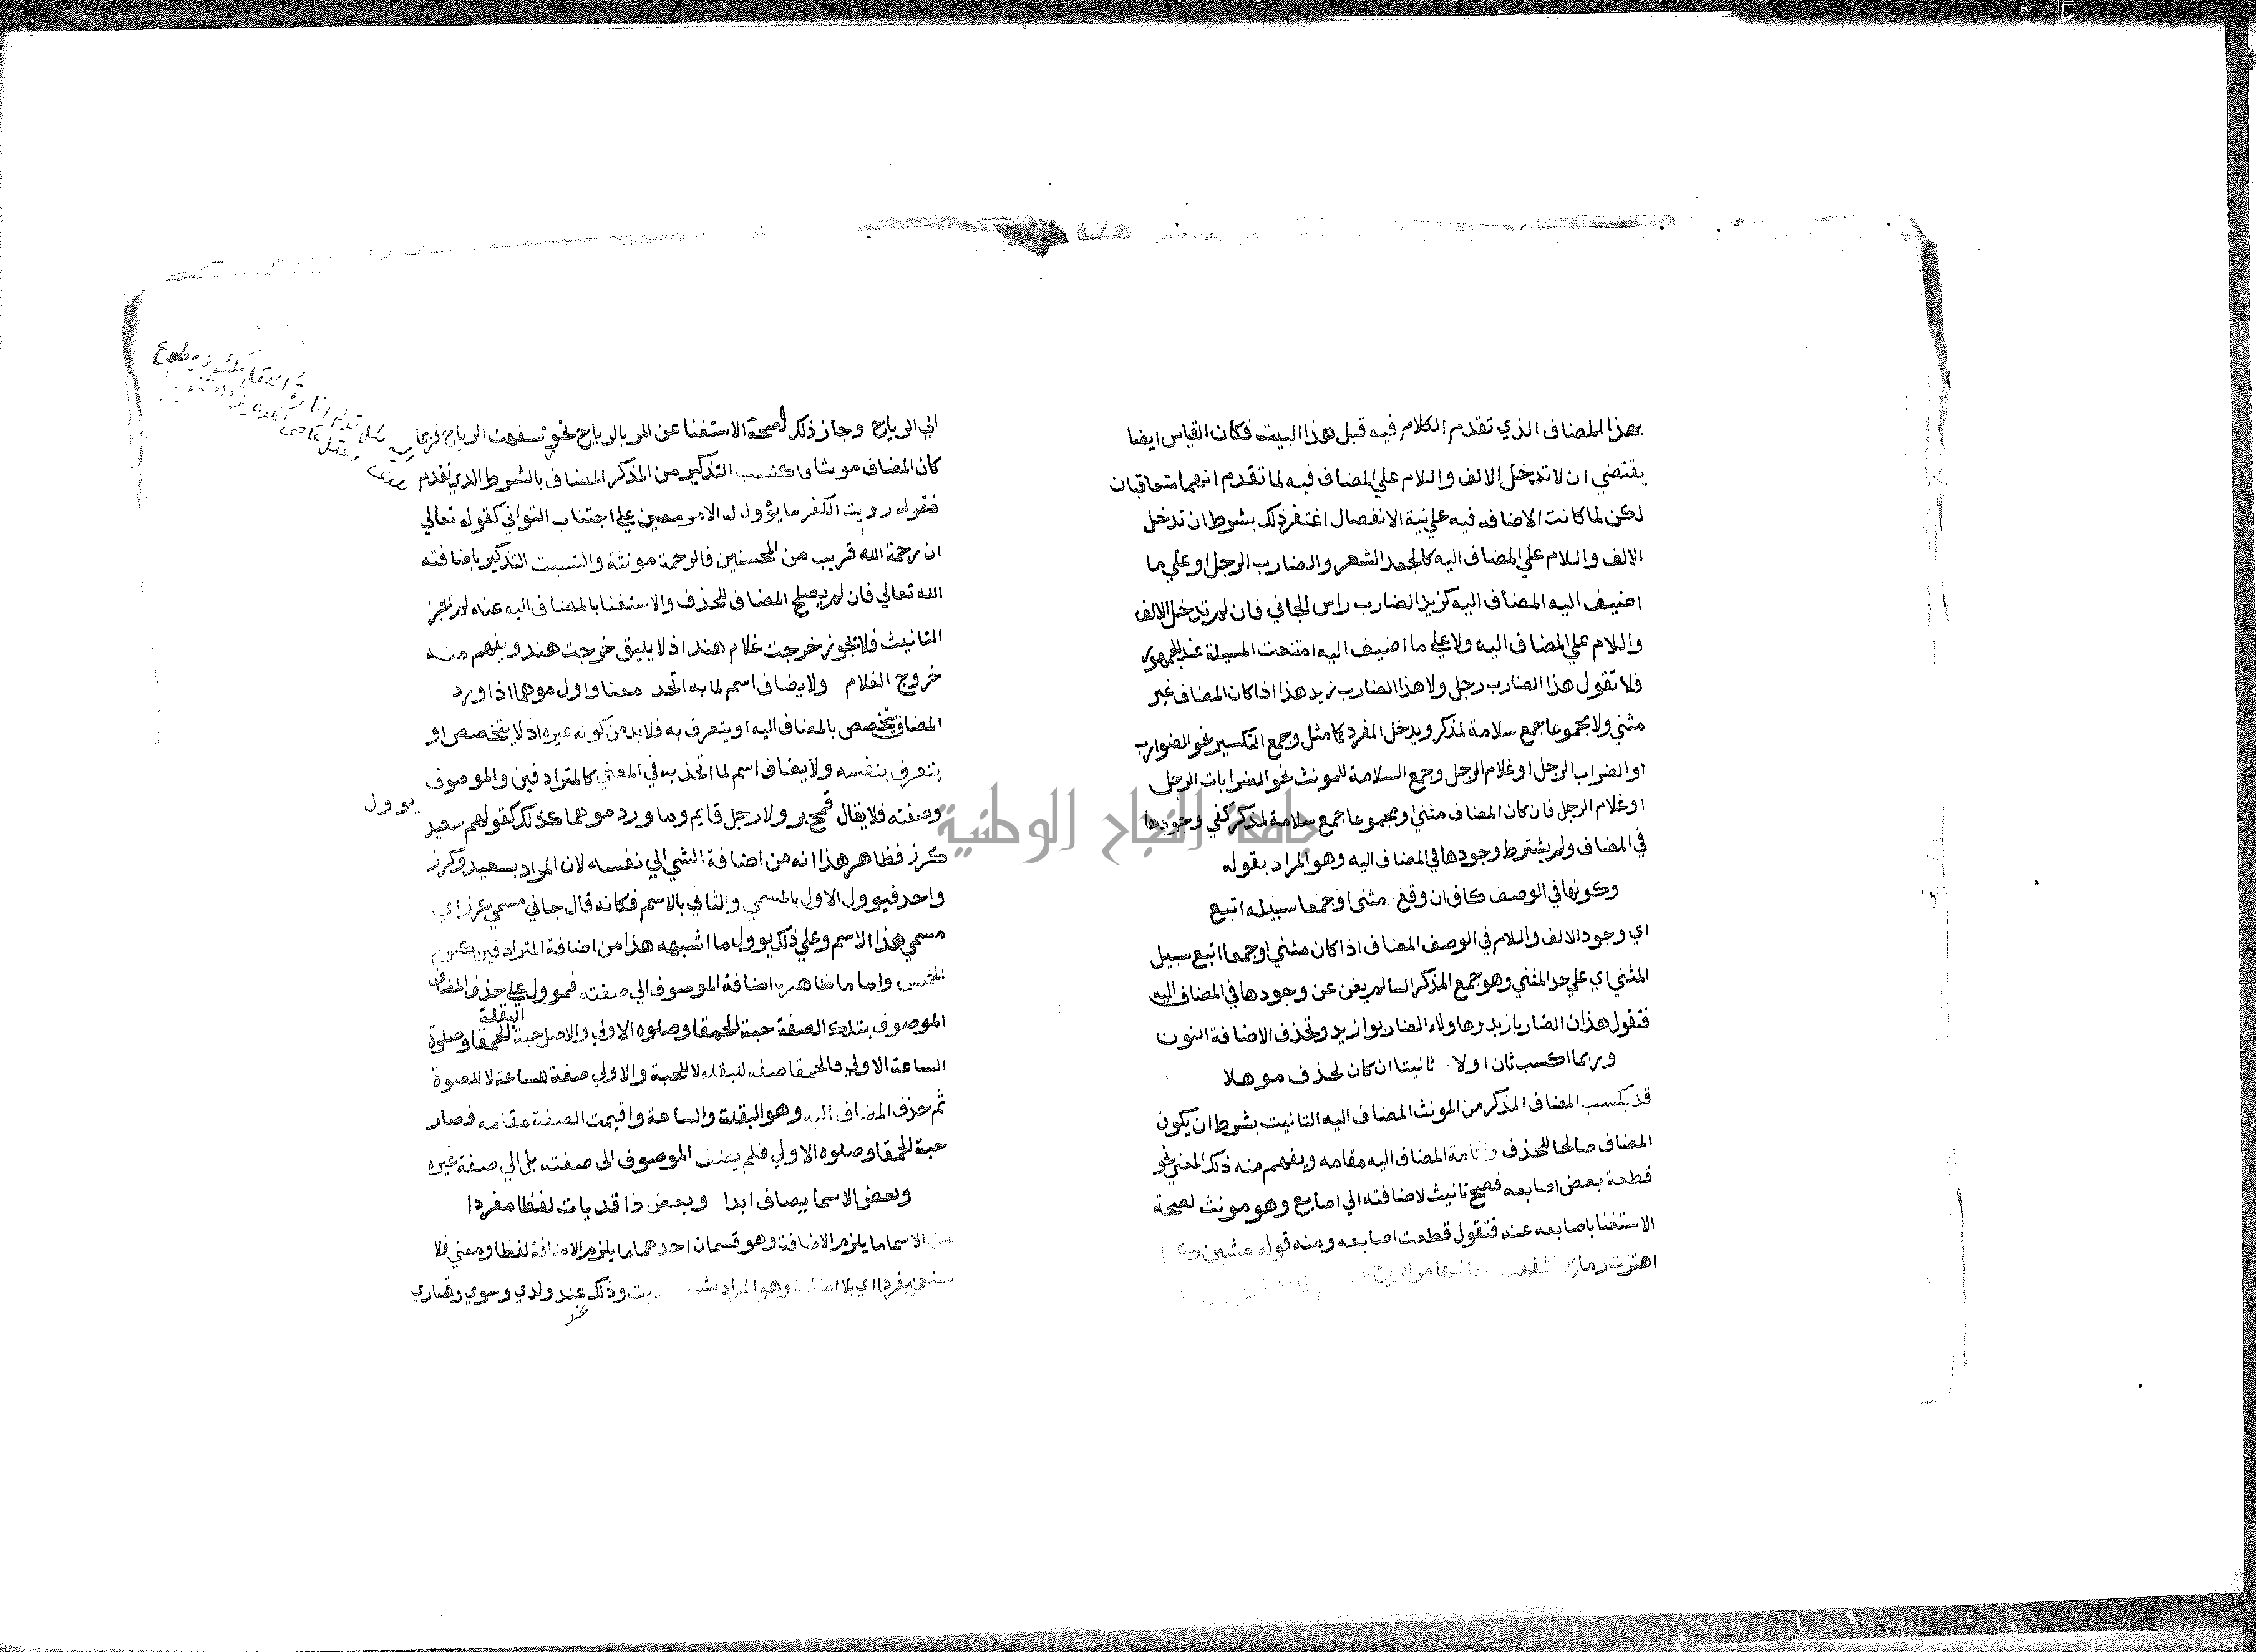 بهذا المضاف الذي تقدم الكلام فيه قبل هذا البيت فكان القياس ايضا
يقتضي ان لا تدخل الالف واللام علي المضاف فيه لما تقدم انهما متعاقبان
لكن لما كانت الاضافه فيه علي نية الانفصال اغتفر ذلك بشرط ان تدخل
الالف واللام علي المضاف اليه كالجعد الشعر والضارب الرجل او علي ما
اضيف اليه المضاف اليه كزيد الضارب راس الجاني فان لم تدخل الالف
واللام علي المضاف اليه ولا علي ما اضيف اليه امتنعت المسيلة عند الجمهور
فلا تقول هذا الضارب رجل ولا هذا الضارب زيد هذا اذا كان المضاف غير
مثني ولا مجموعا جمع سلامة لمذكر ويدخل المفرد كما مثل وجمع التكسير نحو الضوارب
او الضراب الرجل او غلام الرجل وجمع السلامة للمونث نحو الضرابات الرجل
او غلام الرجل فان كان المضاف مثني او مجموعا جمع سلامة لمذكر كفي وجودها
في المضاف ولم يشترط وجودها في المضاف اليه وهو المراد بقوله
وكونها في الوصف كاف ان وقع مثني او جمعا سبيله اتبع
اي وجود الالف واللام في الوصف المضاف اذا كان مثني او جمعا اتبع سبيل
المثني اي علي حد المثني وهو جمع المذكر السالم يغن عن وجودها في المضاف اليه
فتقول هذان الضاربا زيد وهاولاء الضاربوا زيد وتحذف الاضافة النون
وربما اكسب ثان اولا ثانيتا ان كان لحذف موهلا
قد يكسب المضاف المذكر من المونث المضاف اليه التانيت بشرط ان يكون
المضاف صالحا للحذف واقامة المضاف اليه مقامه ويفهم منه ذلك المعني نحو
قطعة بعض اصابعه فصح تانيث لاضافته الي اصابع وهو مونث لصحة
الاستغنا باصابعه عنه فتقول قطعت اصابعه ومنه قوله مشين كما
اهتزت رماح تسفهت
الي الرياح وجاز ذلك لصحة الاستغنا عن المر بالرياح نحو تسفهت الرياح
كان المضاف مونثا واكتسب التذكير من المذكر المضاف بالشرط الذي تقدم
فقوله رويت الفكر ما يؤول له الامر معين علي اجتناب التواني كقوله تعالي
ان رحمة الله قريب من المحسنين فالرحمة مونثة واكتسبت التذكير باضافته
الله تعالي فان لم يصلح المضاف للحذف والاستغنا بالمضاف اليه عنه لم تجز
التانيث فلا تجوز خرجت غلام هند اذ لا يليق خرجت هند ويفهم منه
خروج الغلام ولا يضاف اسم لما به اتحد معنا واول موهما اذا ورد
المضاف يتخصص بالمضاف اليه او يتعرف به فلا بد من كونه غيره اذ لا يتخصص او
يتعرف بنفسه ولا يضاف اسم لما اتحد به في المعني كالمترادفين والموصوف
وصفته فلا يقال قمح بر ولا رجل قايم وما ورد موهما كذلك كقولهم سعيد
يوول
كرز فظاهر هذا انه من اضافة الشي الي نفسه لان المراد بسعيد وكرز
واحد فيوول الاول بالمسمي والثاني بالاسم فكانه قال جاني مسمي كرز اي
مسمي هذا الاسم وعلي ذلك يوول ما اشبهه هذا من اضافة المترادفين كيوم
الخميس واما ما ظاهره اضافة الموصوف الي صفته فموول علي حذف المضاف
البقلة
الموصوف بتلك الصفة حبة الحمقا وصلوه الاولي والاصل حبة الحمقا وصلوة
الساعة الاولي فالحمقا صفه للبقله لا للحبة والاولي صفة للساعة لا للصوة
ثم حذف المضاف اليه وهو البقلة والساعة واقيمت الصفة مقامه فصار
حبة الحمقا وصلوه الاولي فلم يضف الموصوف الي صفته بل الي صفة غيره
وبعض الاسما يضاف ابدا وبعض ذا قد يات لفظا مفردا
من الاسما ما يلزم الاضافة وهو قسمان احدهما ما يلزم الاضافة لفظا ومعني فلا
يستعمل مفردا اي بلا اضافة وهو المراد بيت وذلك عند ولدي وسوي وقصاري
جامعة النجاح الوطنية